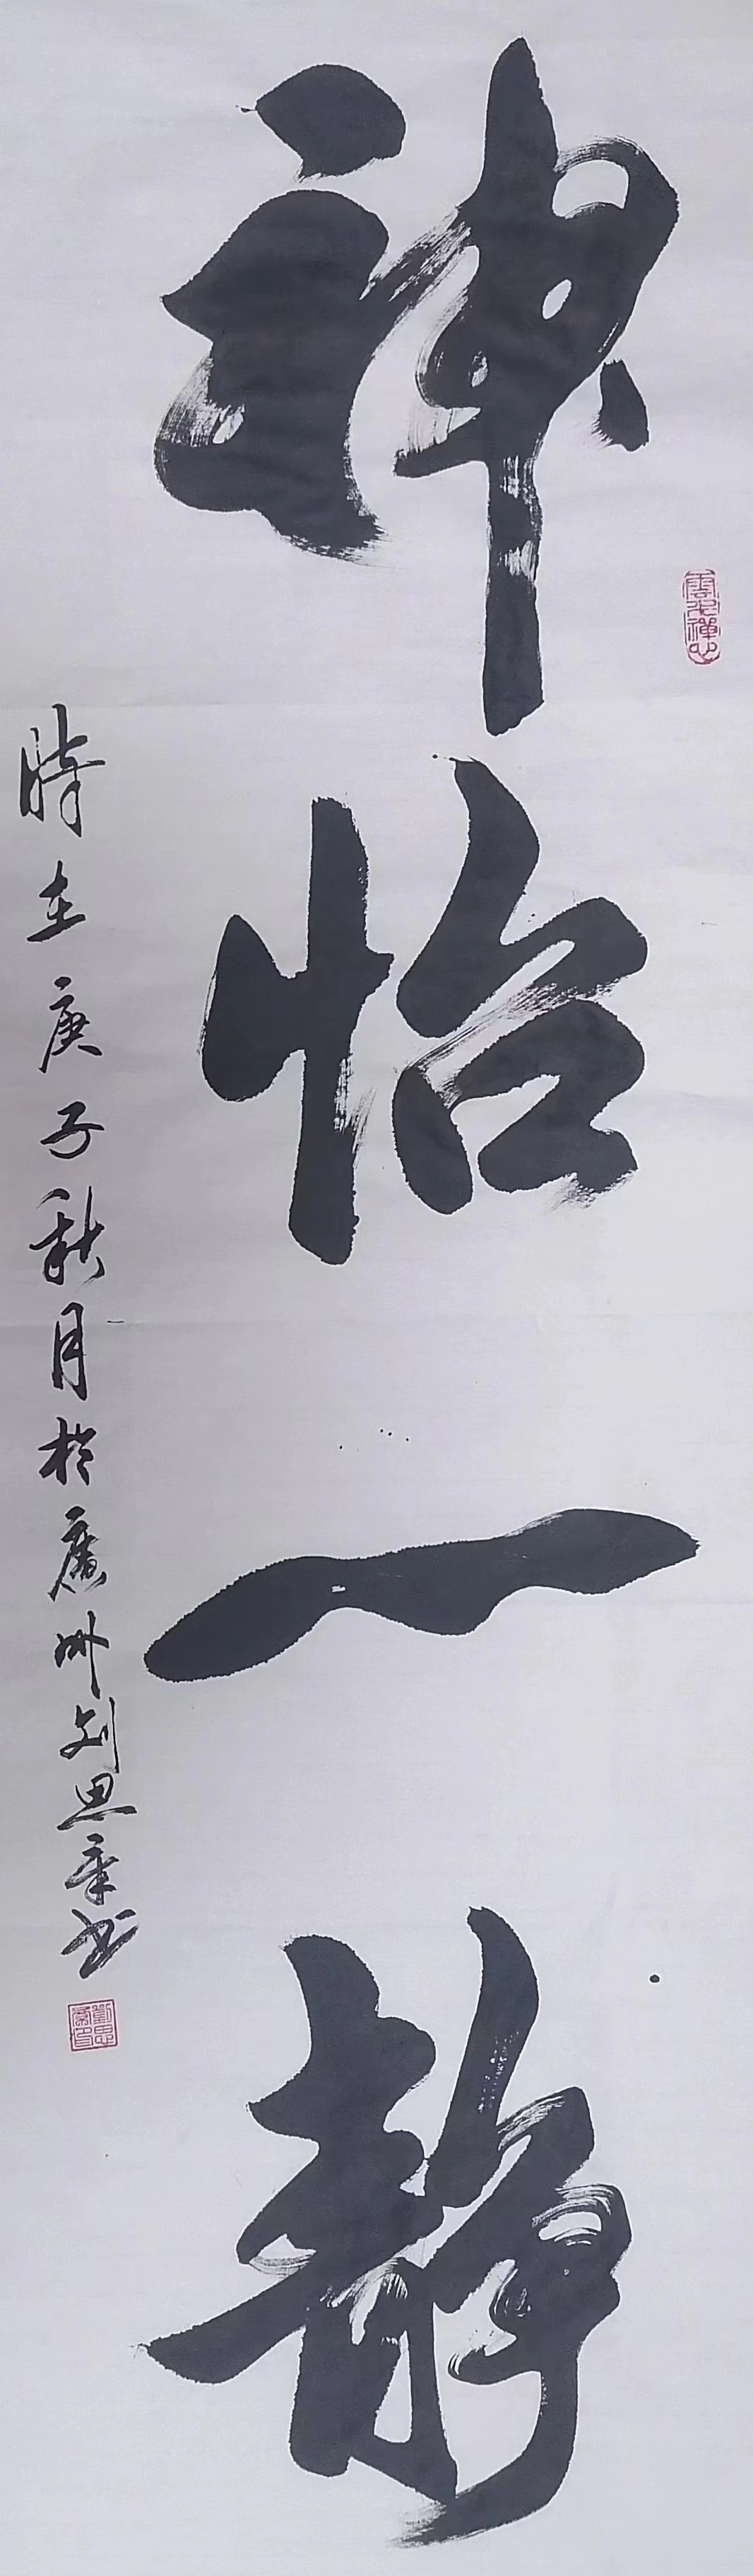 神怡一静
時在庚子秋月於廣州劉思章书